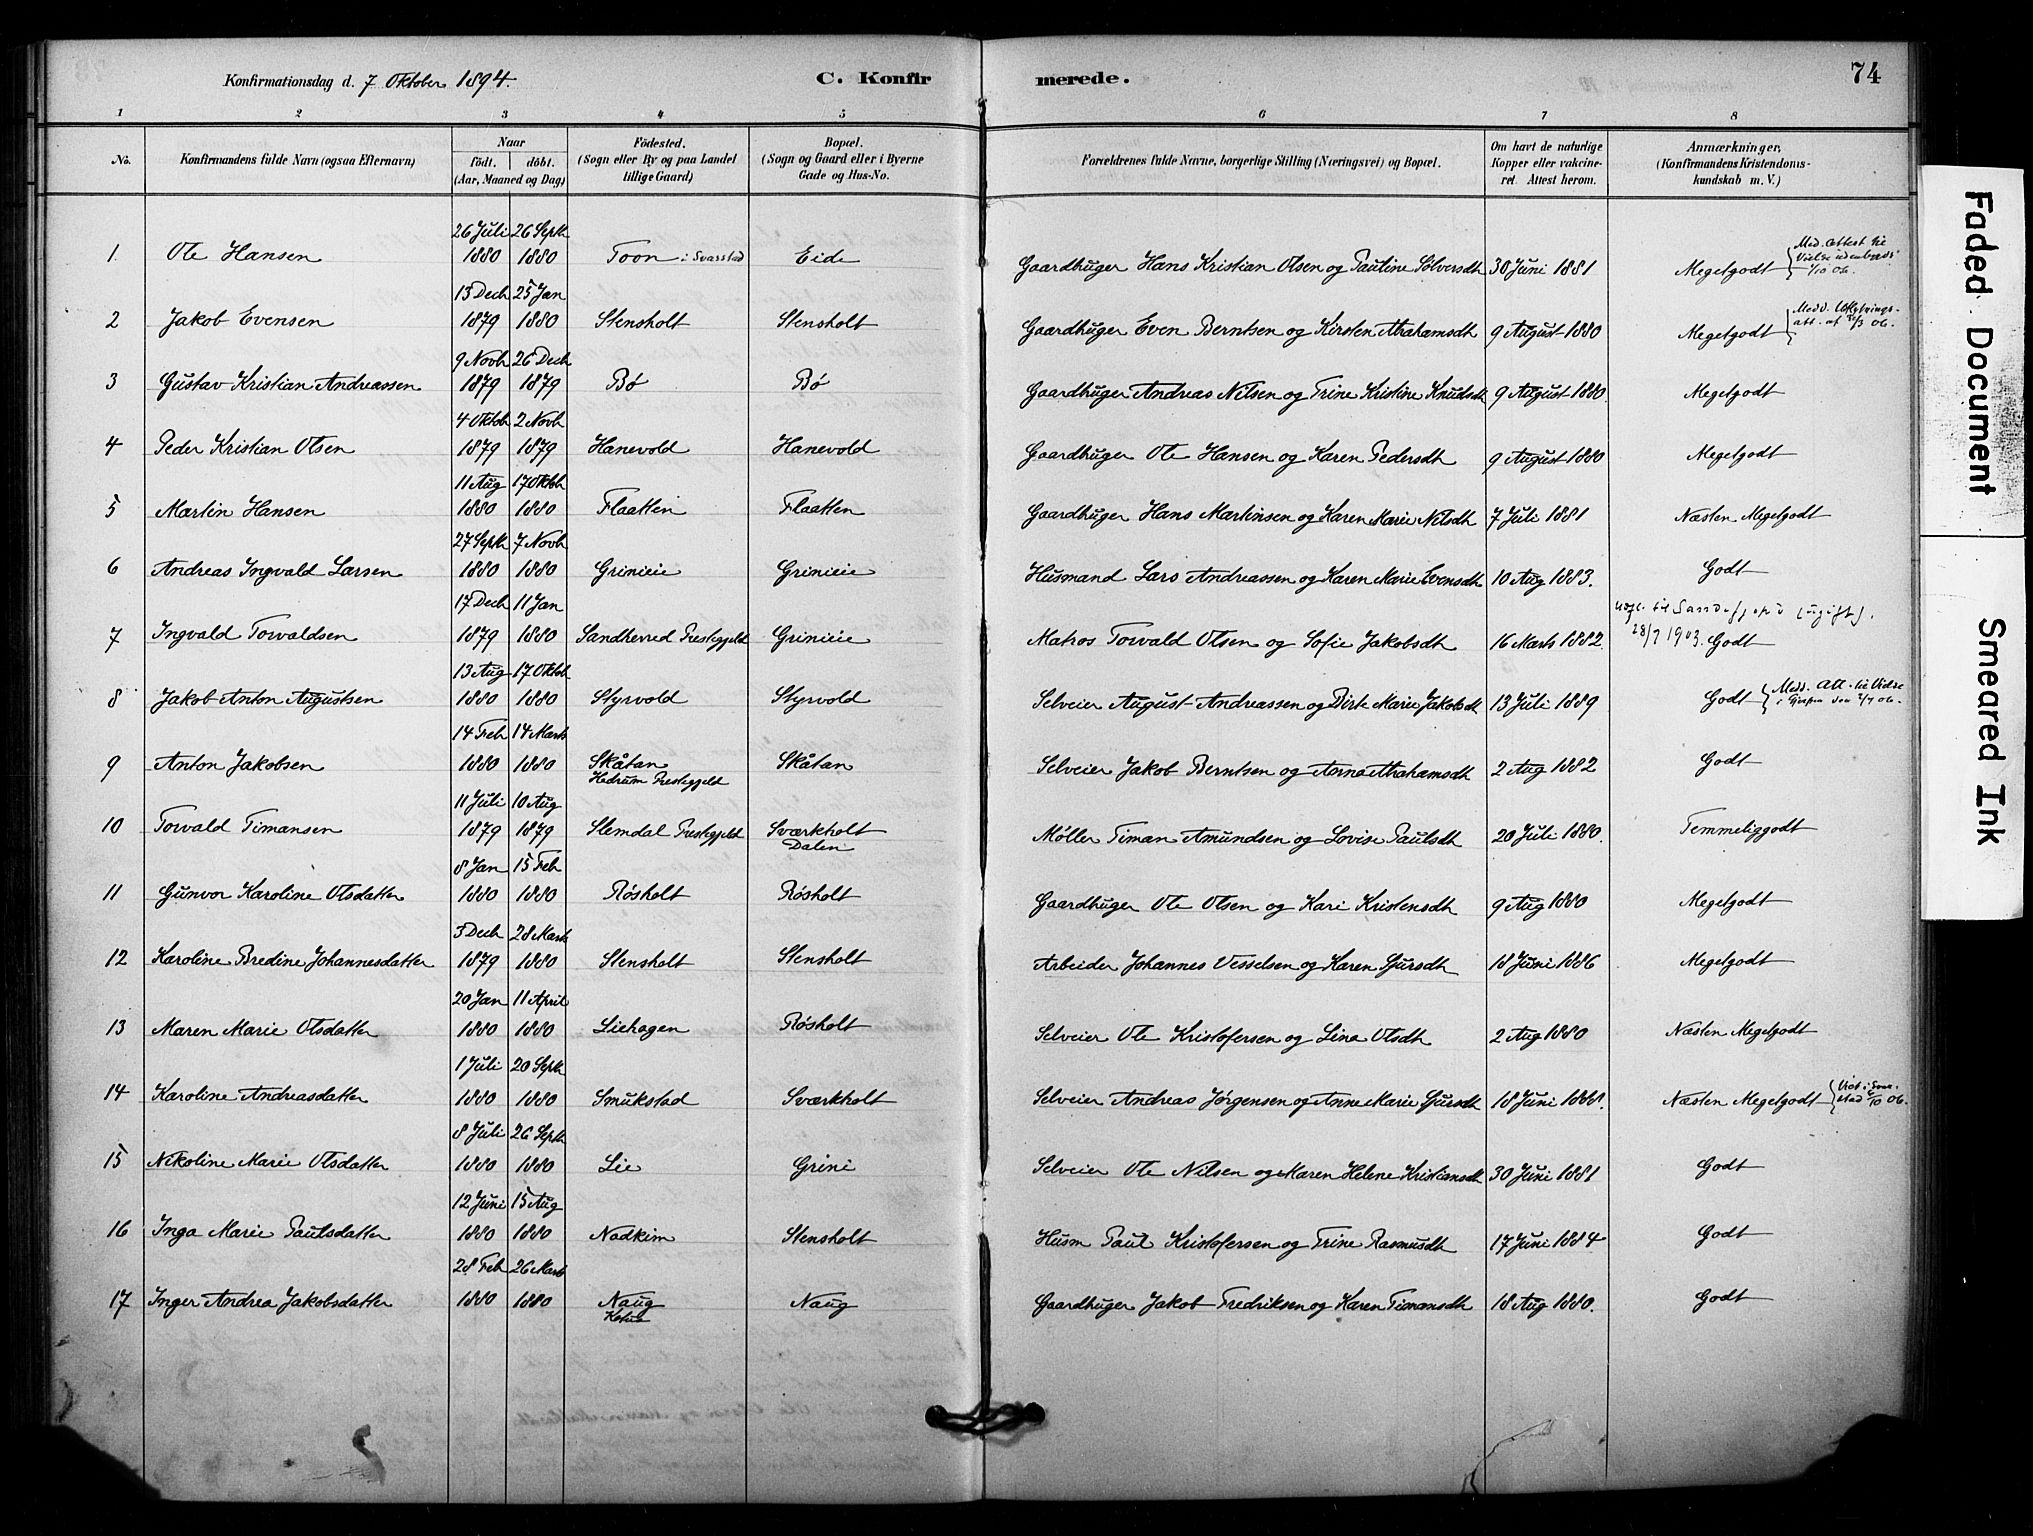 Konfirmationsdag d. 7 Oktober 1894. C. Konfirmerede. 74
1 2 3 4 5 6 7 8
No. Konfirmandens fulde Navn (ogsaa Efternavn) Naar födt. döbt. (Aar, Maaned og Dag) Födested. (Sogn eller By og paa Landet tillige Gaard) Bopæl. (Sogn og Gaard eller i Byerne Gade og Hus-No. Forældrenes fulde Navne, borgerlige Stilling (Næringsvei) og Bopæl. Om havt de naturlige Kopper eller vakcineret. Attest herom. Anmærkninger, (Konfirmandens Kristendomskundskab m. V.)
1. Ole Hansen 26 Juli 1880 26 Septb 1880 Toon i Svarstad Eide Gaardbruger Hans Kristian Olsen og Pauline Sølversdtr 30 Juni 1881 Megetgodt Med. Attest til Vielse udenbygds 1/10 06.
2 Jakob Evensen 13 Decb 1879 25 Jan 1880 Stensholt Stensholt Gaardbruger Even Berntsen og Kirsten Abrahamsdt 9 August 1880 Megetgodt Medd. Udflytningsatt. af /3 06.
3 Gustav Kristian Andreassen 9 Novb 1879 26 Decb 1879 Bø Bø Gaardbruger Andreas Nilsen og Trine Kristine Knudsdt 9 August 1880. Megetgodt
4 Peder Kristian Olsen 4 Oktob 1879 2 Novb 1879 Hanevold Hanevold Gaardbruger Ole Hansen og Karen Pedersdt 9 August 1880 Megetgodt
5 Martin Hansen 11 Aug 1880 17 Oktob 1880 Flaatten Flaatten Gaardbruger Hans Martinsen og Karen Marie Nilsdt 7 Juli 1881 Næsten Megetgodt
6 Andreas Ingvald Larsen 27 Septb 1880 7 Novb 1880 Grinieie Grinieie Husmand Lars Andreassen og Karen Marie Evensdt 10 Aug 1883. Godt
7 Ingvald Torvaldsen 17 Decb 1879 11 Jan 1880 Sandherred Prestegjeld Grinieie Matros Torvald Olsen og Sofie Jakobsdt 16 Marts 1882. Udfl. til Sandefjord (ugift). 28/7 1903. Godt
8 Jakob Anton Augustsen 13 Aug 1880 17 Oktob 1880 Styrvold Styrvold Selveier August Andreassen og Birte Marie Jakobsdt 13 Juli 1889 Godt Medd. Att. til Vielse i Gjerpen den 2/7 06.
9 Anton Jakobsen 14 Feb 1880 14 Marts 1880 Skåtan Hedrum Prestegjeld Skåtan Selveier Jakob Berntsen og Anna Abrahamsdt 2 Aug 1882 Godt
10 Torvald Timansen 11 Juli 1879 10 Aug 1879 Slemdal Prestegjeld Sværkholt Dalen Møller Timan Amundsen og Lovise Paulsdt 20 Juli 1880. Temmeliggodt
11 Gunvor Karoline Olsdatter 8 Jan 1880 15 Feb 1880 Røsholt Røsholt Gaardbruger Ole Olsen og Kari Kristensdt 9 Aug 1880 Megetgodt
12 Karoline Bredine Johannesdatter 3 Decb 1879 28 Marts 1880 Stensholt Stensholt Arbeider Johannes Vesselsen og Karen Sjursdt 18 Juni 1886 Megetgodt
13 Maren Marie Olsdatter 20 Jan 1880 11 April 1880 Liehagen Røsholt Selveier Ole Kristofersen og Lina Olsdt 2 Aug 1880 Næsten Megetgodt
14 Karoline Andreasdatter 1 Juli 1880 20 Septb 1880 Smukstad Sværkholt Selveier Andreas Jørgensen og Anne Marie Sjursdt 18 Juni 1886. Næsten Megetgodt Viet i Svarstad /10 06.
15 Nikoline Marie Olsdatter 8 Juli 1880 26 Septb 1880 Lie Grini Selveier Ole Nilsen og Maren Helene Kristiansdt 30 Juni 1881 Godt
16 Inga Marie Paulsdatter 12 Juni 1880 15 Aug 1880 Nadkim Stensholt Husm Paul Kristofersen og Trine Rasmusdt 17 Juni 1884 Godt
17 Inger Andrea Jakobsdatter 28 Feb 1880 26 Marts 1880 Naug Naug Gaardbruger Jakob Fredriksen og Karen Timansdt 18 Aug 1880. Godt
Faded Document
Smeared Ink